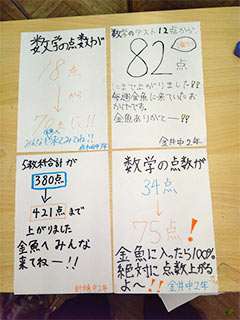 数学の点数が
18点
から
70点に!!
みんなに来てみてね!!
数学のテスト12点から
82点
にまで上がりました!!
毎週金魚に来ていた
おかげです。
金魚ありがとー!!
金井中2年
5教科合計が
380点
421点まで
上がりました
金魚へみんな
来てねー!!
2年
数学の点数が
34点
75点!
金魚に入ったら100%
絶対に点数上がる
よ〜!!
金井中2年